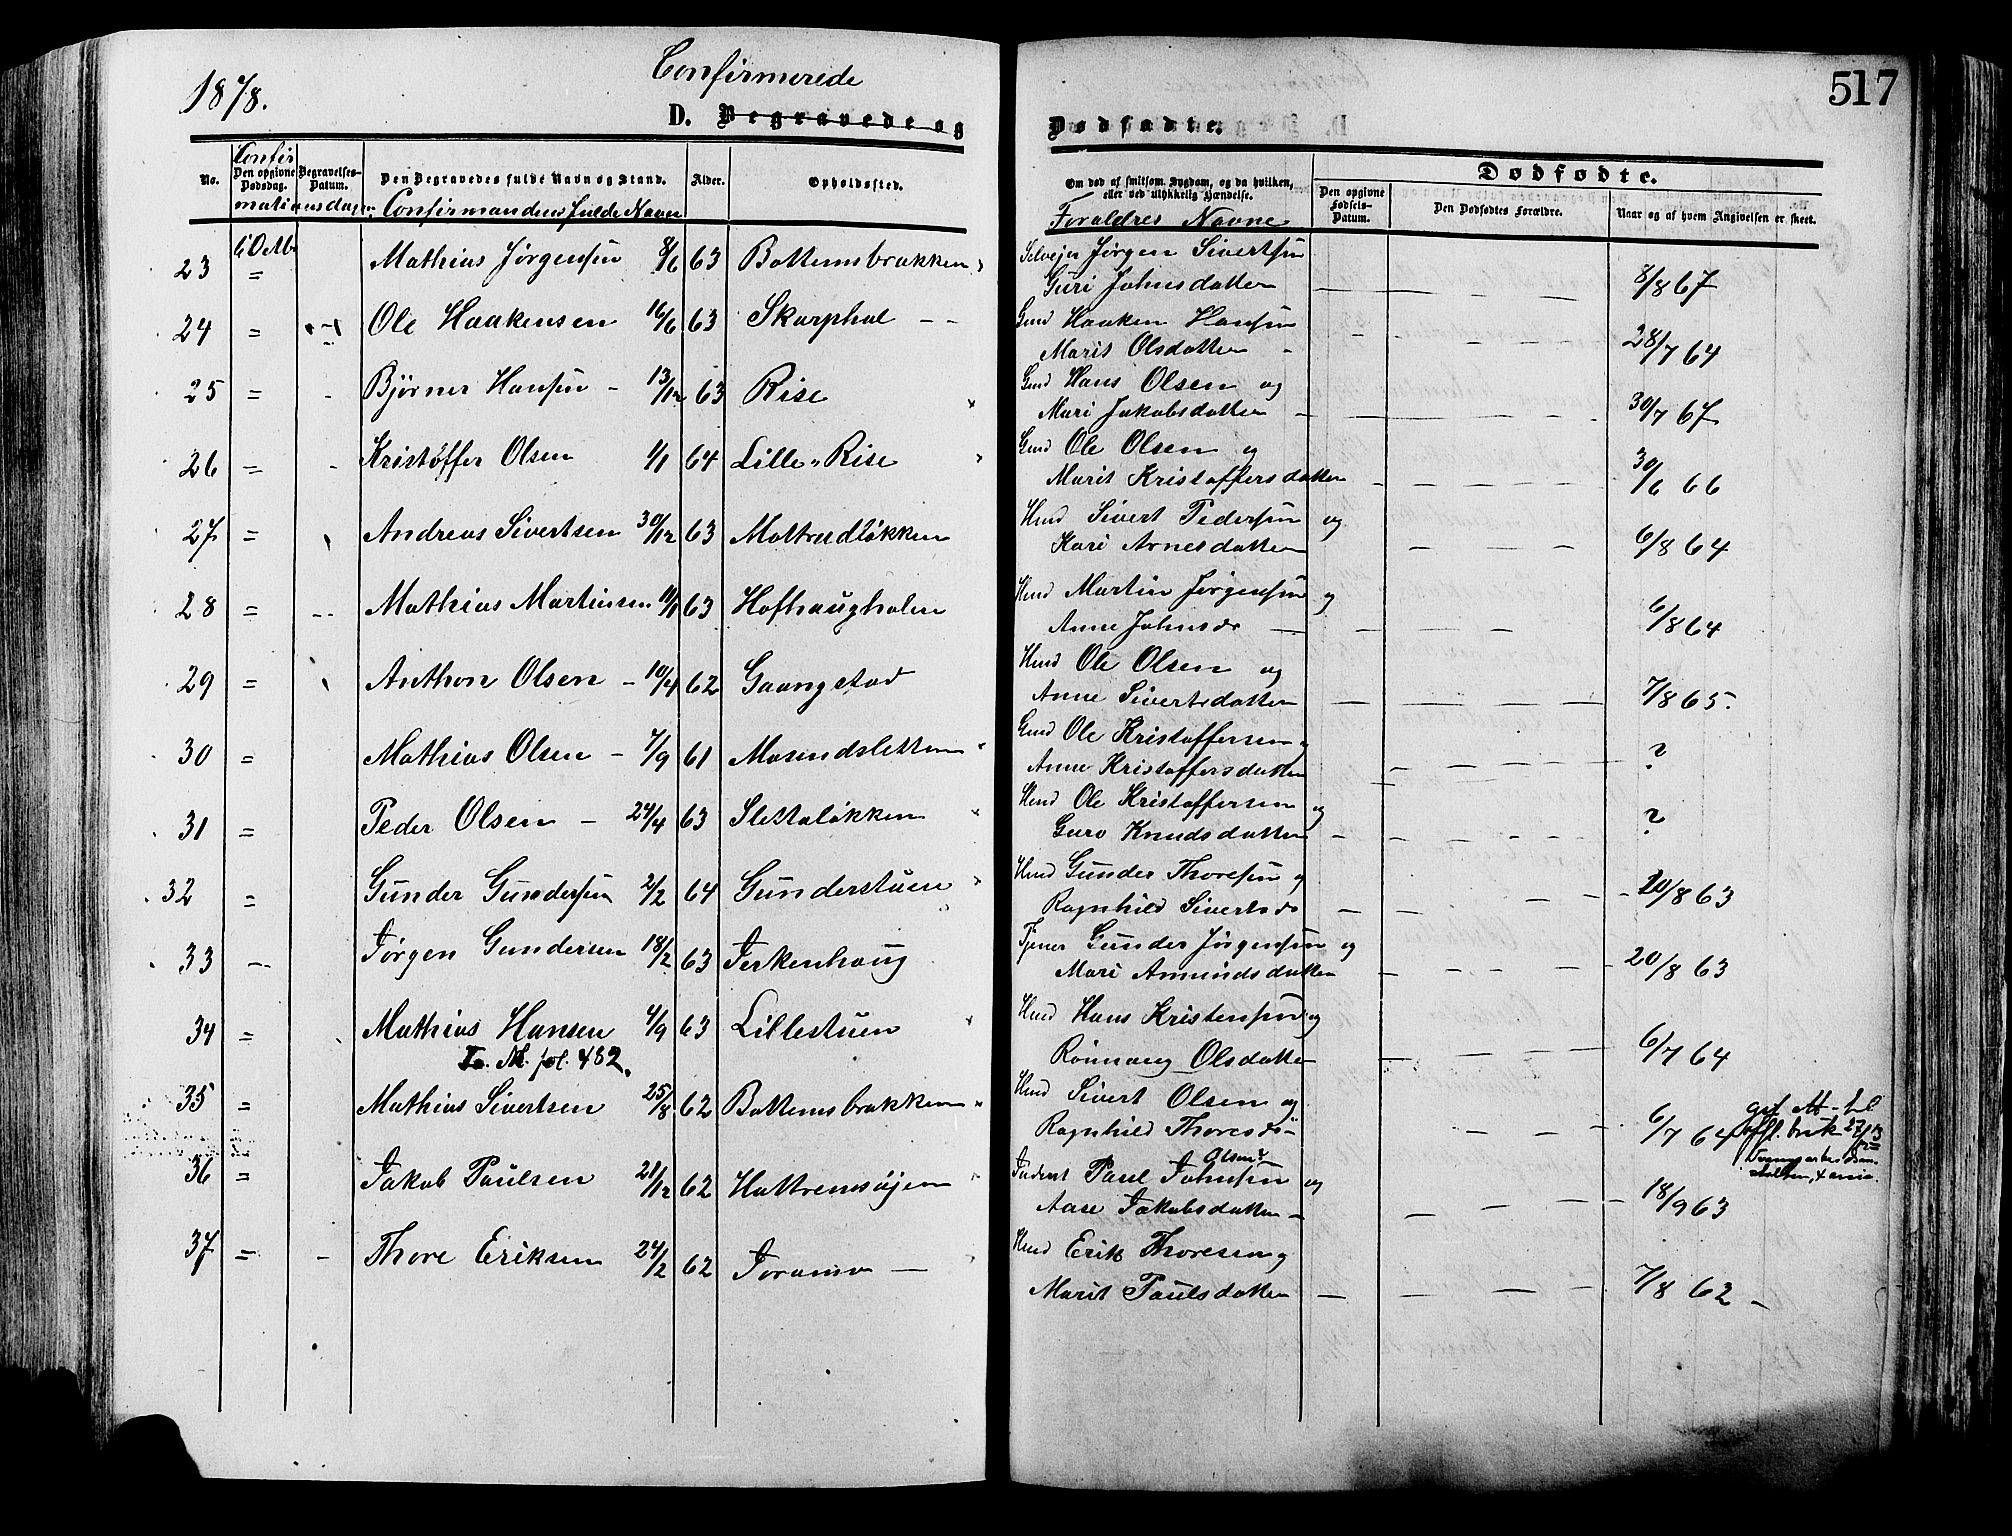 1878.
Confirmerede
D. Begravede og
Dødfødte.
517
No.
Confir
Den opgivne Dødsdag.
mationsdagen
Begravelses-Datum.
Den Begravedes fulde Navn og Stand.
Confirmandens fulde Navn
Alder.
Opholdssted.
Om død af smitsom Sygdom, og da hvilken,
eller ved ulykkelig Hændelse.
Forældres Navne
Dødfødte.
Den opgivne Fødsels-Datum.
Den Dødfødtes Forældre.
Naar og af hvem Angivelsen er skeet.
23 6 Octbr = Mathias Jørgensen 8/6 63 Bottemsbrækken Selvejer Jørgen Sivertsen
Guri Johnsdatter 8/8 67
24 = Ole Haakensen 16/6 63 Skarphol Gmd Haaken Hansen
Marit Olsdatter 28/7 64
25 = Bjørner Hansen 13/12 63 Rise Gmd Hans Olsen og
Mari Jakobsdatter 30/7 67
26 = Kristoffer Olsen 1/1 64 Lille-Rise Gmd Ole Olsen og
Marit Kristoffersdatter 30/6 66
27 = Andreas Sivertsen 30/12 63 Mottrudløkken Hmd Sivert Pedersen og
Kari Arnesdatter 6/8 64
28 = Mathias Martinsen 11/1 63 Hofhaugholen Hmd Martin Jørgensen og
Anne Johnsdr 6/8 64
29 = Anthon Olsen 10/4 62 Gaangstad Hmd Ole Olsen og
Anne Sivertsdatter 7/8 65.
30 = Mathias Olsen 7/9 61 Mosendsletten Gmd Ole Kristoffersen og
Anne Kristoffersdatter ?
31 = Peder Olsen 24/4 63 Slettaløkken Hmd Ole Kristoffersen og
Guro Knudsdatter ?
32 = Gunder Gundersen 2/2 64 Gunderstuen Hmd Gunder Thoresen og
Ragnhild Sivertsdr 20/8 63
33 Jørgen Gundersen 18/2 63 Jerkenhaug Tjener Gunder Jørgensen og
Mari Amundsdatter 20/8 63
34 = Mathias Hansen 4/9 63 Lillestuen Hmd Hans Kristensen og
Rønnaug Olsdatter 6/7 64
fol. 482.
35 = Mathias Sivertsen 25/8 62 Bottemsbrækken Hmd Sivert Olsen og
Ragnhild Thoresdr 6/7 64
36 = Jakob Paulsen 21/12 62 Hattremsøjen Inderst Paul Johnsen og
Olsen?
Aase Jakobsdatter 18/9 63
37 = Thore Eriksen 24/2 62 Joramo Hmd Erik Thoresen og
Marit Paulsdatter 7/8 62